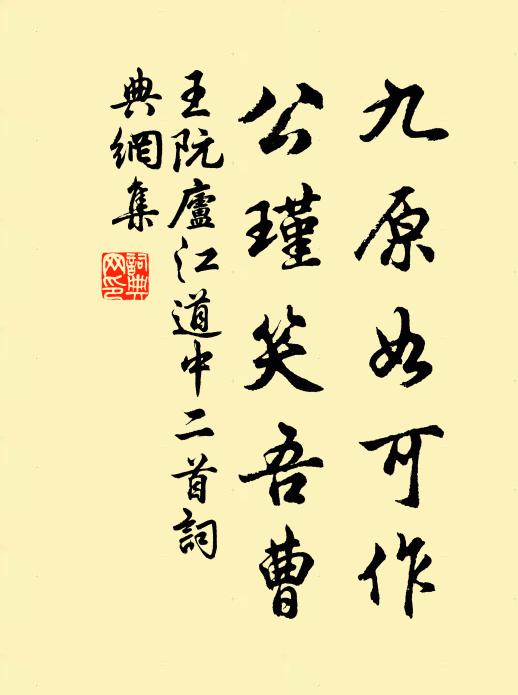 九原如可作
公瑾笑吾曹
王阮廬江道中二首詞
典網集
詞典網印